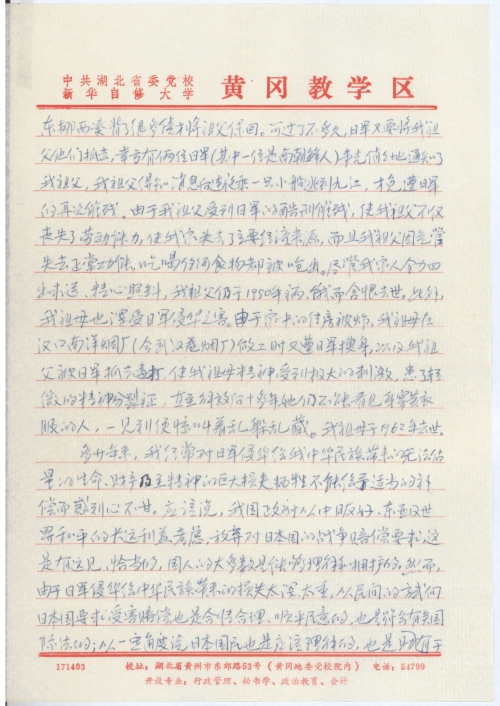 中共湖北省委党校
新华自修大学
黄冈教学区
东挪西凑背了很多债才将祖父保回。可过了不多久,日军又要将我祖
父他们抓去,幸亏有俩伪日军(其中一位是南朝鲜人)事先悄悄地通知了
我祖父,我祖父得知消息后连夜乘一只小船逃到九江,才免遭日军
的再次摧残。由于我祖父受到日军的酷刑摧残,使我祖父不仅
丧失了劳动能力,使我家失去了主要经济来源,而且我祖父因气管
失去正常功能,吃喝任何食物都被呛出。尽管我家人全力四
出求退、精心照料,我祖父仍于1950年病、饿而含恨去世。此外,
我祖母也深受日军侵华之害。由于家中的住房被炸,我祖母在
汉口南洋烟厂(今武汉卷烟厂)做工时又遭日军搜身,以及我祖
父被日军抓去毒打,使我祖母精神受到极大的刺激,患了轻
微的精神分裂症,直至解放后十多年她仍不能看见穿黄衣
服的人,一见到便惊叫着乱躲乱藏。我祖母于1962年去世。
多少年来,我经常对日军侵华给我中华民族带来的无法估
量的生命、财产乃至精神的巨大损失牺牲不能给予适当的补
偿而感到心不甘。应该说,我国政府从中日友好、东亚及世
界和平的长远利益考虑,放弃对日本国的战争赔偿要求,这
是有远见,恰当的,国人的大多数是能够理解和拥护的。然而,
由于日军侵华给中华民族带来的损失太深太重,从民间的方式向
日本国要求受害赔偿也是合情合理、顺乎民意的,也是符合有关国
际法的;从一定角度说日本国民也是应该理解的,也是有利于
171403 校址:湖北省黄州市东郊路53号(黄冈地委党校院内) 电话:54799
开设专业:行政管理、秘书学、政治教育、会计